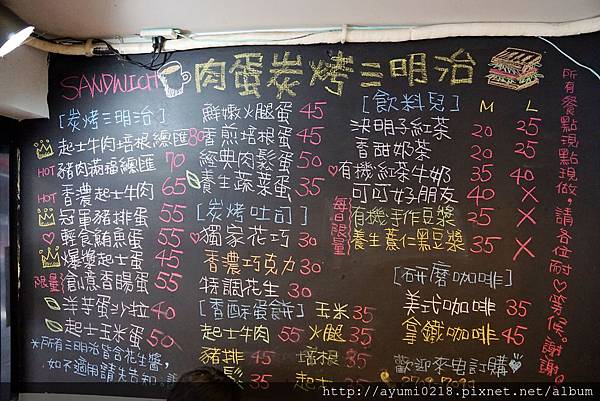 SANDWICH 肉蛋炭烤三明治
[炭烤三明治]
起士牛肉培根總匯 80
HOT 豬肉滿福總匯 70
HOT 香濃起士牛肉 65
冠軍豬排蛋 55
輕食鮪魚蛋 55
爆漿起士蛋 45
限量 創意香腸蛋 55
洋芋蛋沙拉 40
起士玉米蛋 50
*所有三明治皆含花生醬,
如不適用請先告知
鮮嫩火腿蛋 45
香煎培根蛋 45
經典肉鬆蛋 50
養生蔬菜蛋 35
[炭烤吐司]
獨家花巧 30
香濃巧克力 30
特調花生 30
[香酥蛋餅] 玉米 35
起士牛肉 55 火腿 35
豬排 45 培根 35
35 起士
[飲料兒] M L
決明子紅茶 20 25
香甜奶茶 20 25
有機紅茶牛奶 35 40
可可好朋友 40 X
每日限量
有機手作豆漿 25 X
養生薏仁黑豆漿 35 X
[研磨咖啡]
美式咖啡 35
拿鐵咖啡 45
歡迎來电訂購
所有餐點現點現做,請各位耐心等候。謝謝。
http://ayumi0218.pixnet.net/album